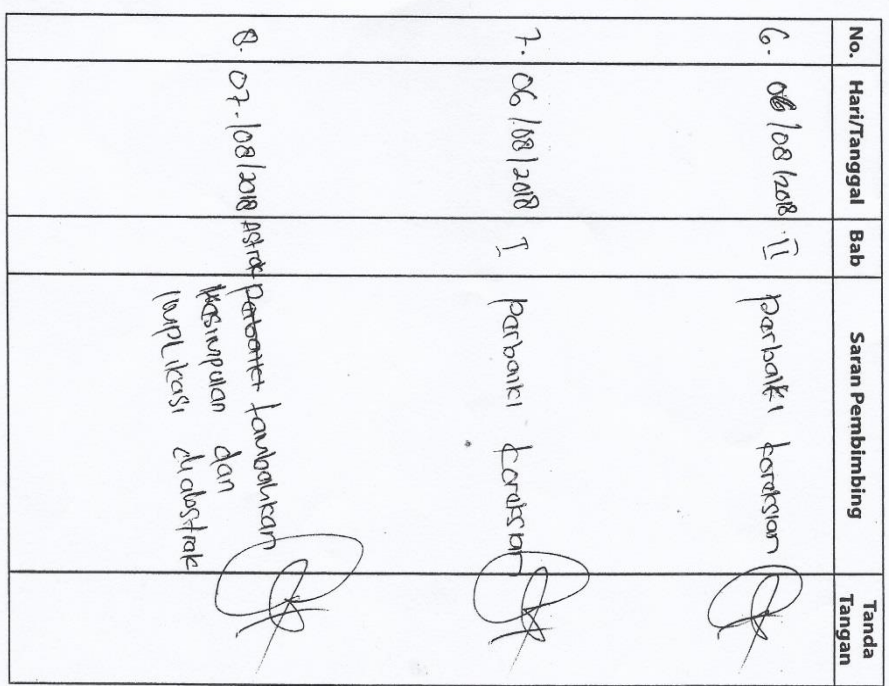 No. Hari/Tanggal Bab Saran Pembimbing Tanda Tangan
6. 06/08/2018 II parbaiki koraksian
7. 06/08/2018 I parbaiki koraksian
8. 07-/08/2018 Abstrak tambahkan
kasimpulan dan
implikasi diabstrak